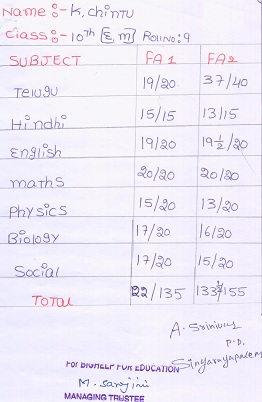 Name :- K. Chintu
Class :- 10th [E.m] Roll NO: 9
SUBJECT FA 1 FA2
Telugu 19/20 37/40
Hindhi 15/15 13/15
English 19/20 19 1/2/20
maths 20/20 20/20
Physics 15/20 13/20
Biology 17/20 16/20
Social 17/20 15/20
TOTAL 122/135 133 1/2/155
A. Srinivas
P.D.
Singarayapalem
For BIOHELP FOR EDUCATION
M. Sarojini
MANAGING TRUSTEE